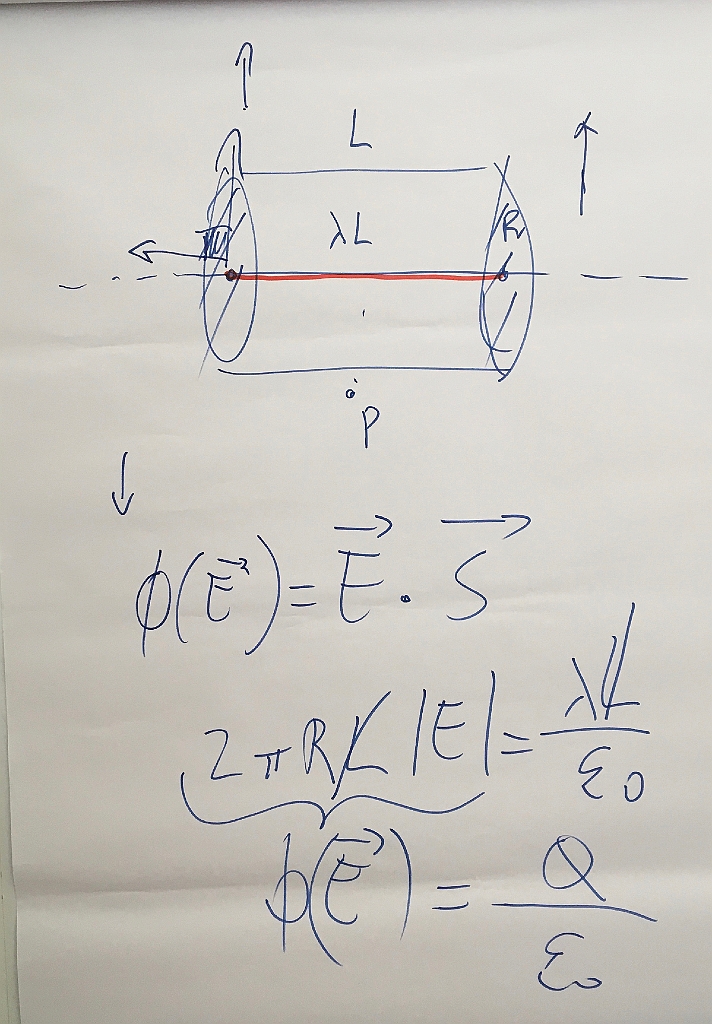 L
λL
R
P
ϕ(E⃗) = E⃗ · S⃗
2πRL |E| = λL / ε₀
ϕ(E⃗) = Q / ε₀